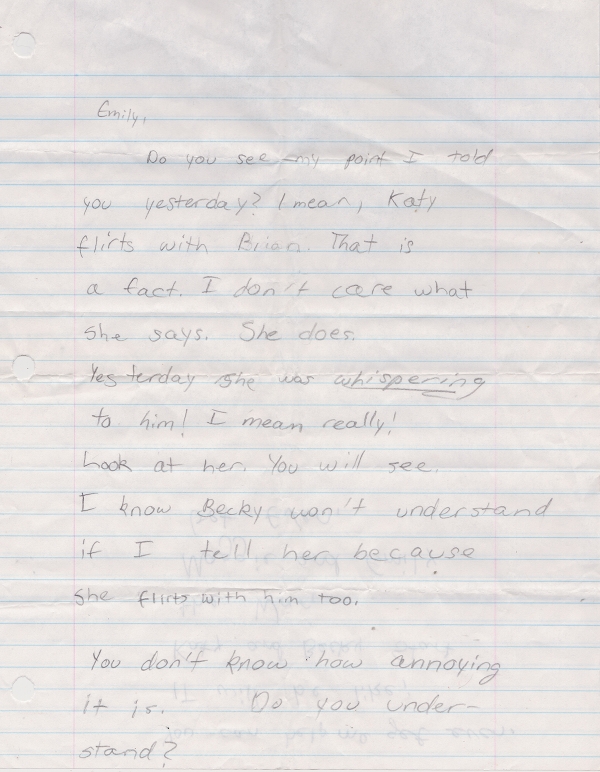 Emily,
Do you see my point I told
you yesterday? I mean, Katy
flirts with Brian. That is
a fact. I don't care what
she says. She does.
Yesterday she was whispering
to him! I mean really!
Look at her. You will see.
I know Becky won't understand
if I tell her because
she flirts with him too.
You don't know how annoying
it is. Do you under-
stand?